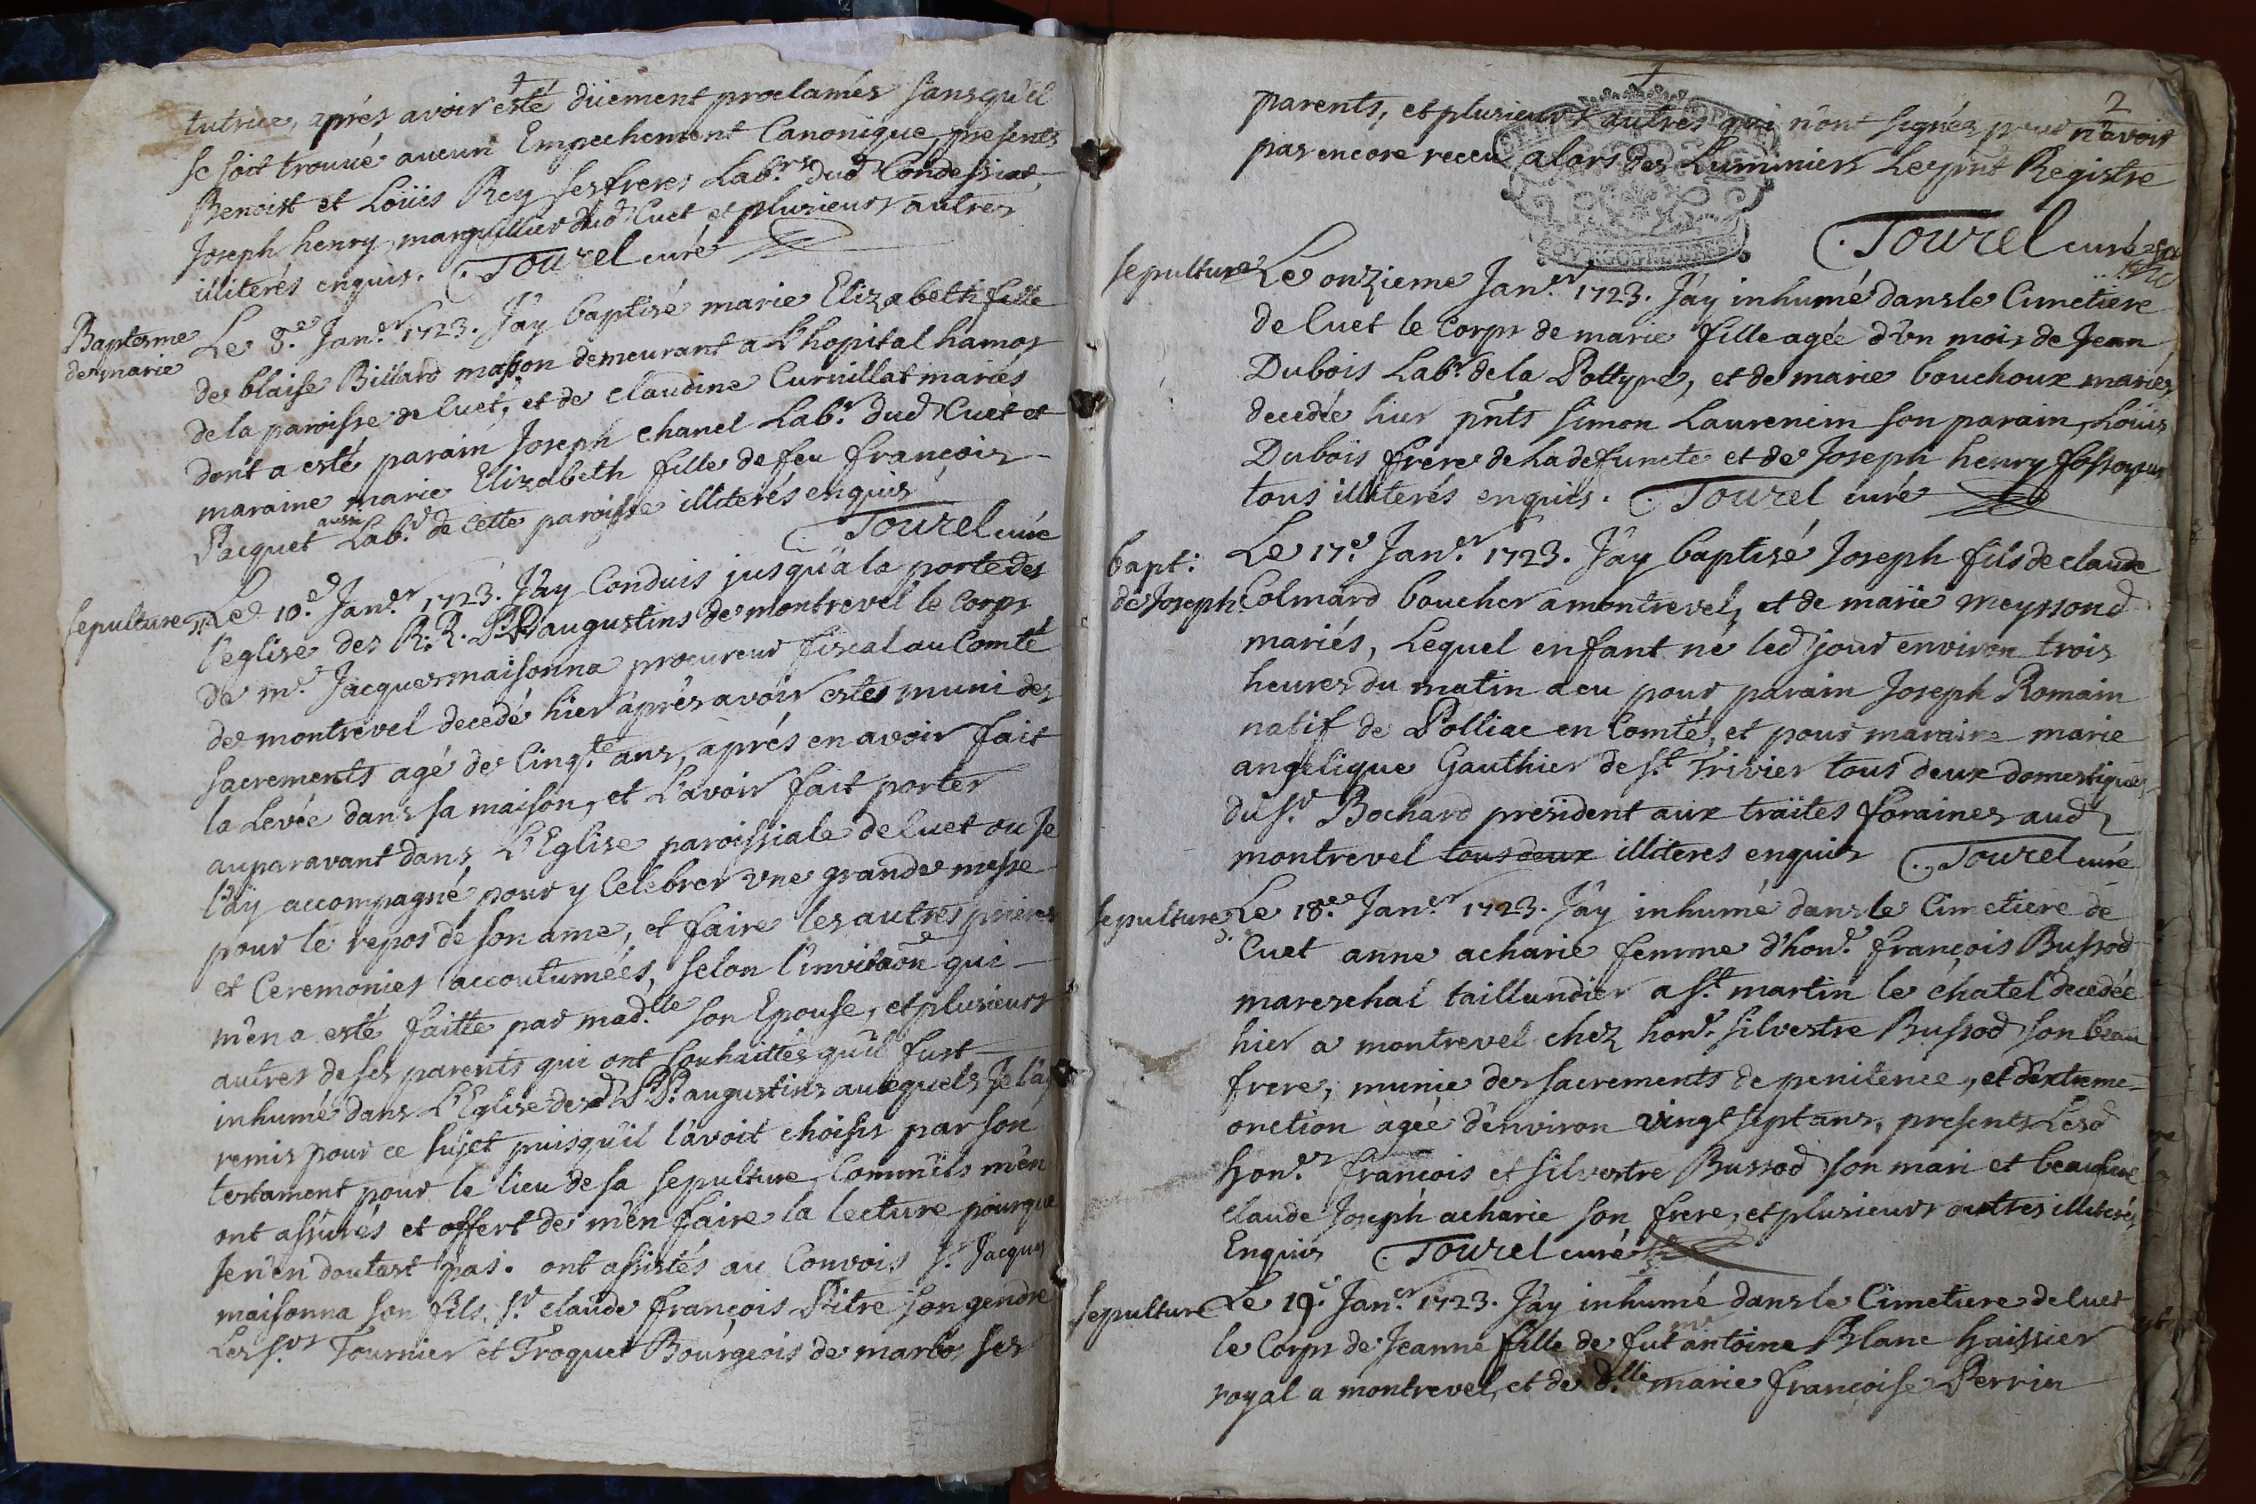 tutrice, aprés avoir esté düement proclamés sans qu'il
se soit trouué aucun Empechement Canonique, presents
Benoist et Loüis Rey ses freres Lab.rs dud Condessiat
Joseph henry marguillier dud Cuet et plusieurs autres
illiterés enquis. Tourel curé
Baptesme
de marie
Le 8.e Jan.er 1723. J'ay baptisé marie Elizabeth fille
de blaise Billard masson demeurant a L'hopital hamos
de la paroisse de Cuet, et de claudine Curnillat mariés
dont a esté parain Joseph chanel Lab.r dud Cuet et
maraine marie Elizabeth fille de feu françois
Pacquet aussi Lab.r de cette paroisse illiterés enquis
Tourel curé
sepulture
Le 10.e Jan.er 1723. J'ay Conduis jusqu'a la porte des
l'eglise des R.R. P.P. augustins de montrevel le Corps
de m.e Jacques maisonna procureur fiscal au Comté
de montrevel decedé hier aprés avoir estes muni des
sacrements agé de Cinq.te ans, aprés en avoir fait
la Levée dans sa maison, et L'avoir fait porter
auparavant dans L'Eglise paroissiale de Cuet ou je
l'ay accompagné pour y Celebrer vne grande messe
pour le repos de son ame, et faire les autres prieres
et Ceremonies accoutumées, selon l'invitaõn qui
m'en a esté faitte par mad.lle son Epouse, et plusieurs
autres de ses parents qui ont souhaittés qu'il fust
inhumé dans L'Eglise desd P.P. augustins auxquels Je l'ay
remis pour ce sujet puisqu'il l'avoit choisis par son
testament pour le lieu de sa sepulture, Comm'ils m'en
ont assurés et offert de m'en faire la lecture pourque
Je n'en doutast pas. ont assistés au Convois s.r Jacques
maisonna son fils, s.r claude françois Pitre son gendre
Les s.rs Tournier et Troquet Bourgeois de marbos ses
2
parents, et plusieurs autres qui n'ont signés pour n'avoir
pas encore receu alors des Luminiers Le pñt Registre
Tourel curé
sepulture
Le onzieme Jan.er 1723. J'ay inhumé dans le Cimetiere
de Cuet le Corps de marie fille agée d'vn mois de Jean
Dubois Lab.r de la Pottyre, et de marie bouchoux mariés,
decedée hier pñts simon Laurencin son parain, Loüis
Dubois frere de la defuncte et de Joseph henry fossoyeur
tous illiterés enquis. Tourel curé
bapt:
de Joseph
Le 17.e Jan.er 1723. J'ay baptisé Joseph fils de claude
Colmard boucher a montrevel, et de marie meyssond
mariés, Lequel enfant né led jour environ trois
heures du matin a eu pour parain Joseph Romain
natif de Polliac en Comté, et pour maraine marie
angelique Gauthier de s.t Trivier tous deux domestiques
du s.r Bochard president aux traites foraines aud
montrevel tous deux illiteres enquis Tourel curé
sepulture
Le 18.e Jan.er 1723. J'ay inhumé dans le Cimetiere de
Cuet anne acharie femme d'hon.e françois Bussod
mareschal taillandier a s.t martin le chatel decedée
hier a montrevel chez hon.e silvestre Bussod son beau
frere, munie des sacrements de penitence, et d'extreme
onction agée d'environ vingt sept ans, presents Lesd
hon.es françois et silvestre Bussod son mari et beaufrere
claude Joseph acharie son frere, et plusieurs autres illiterés
Enquis Tourel curé
sepulture
Le 19.e Jan.er 1723. J'ay inhumé dans le Cimetiere de Cuet
le Corps de Jeanne fille de fut m.e antoine Blanc huissier
royal a montrevel, et de d.lle marie françoise Perrin